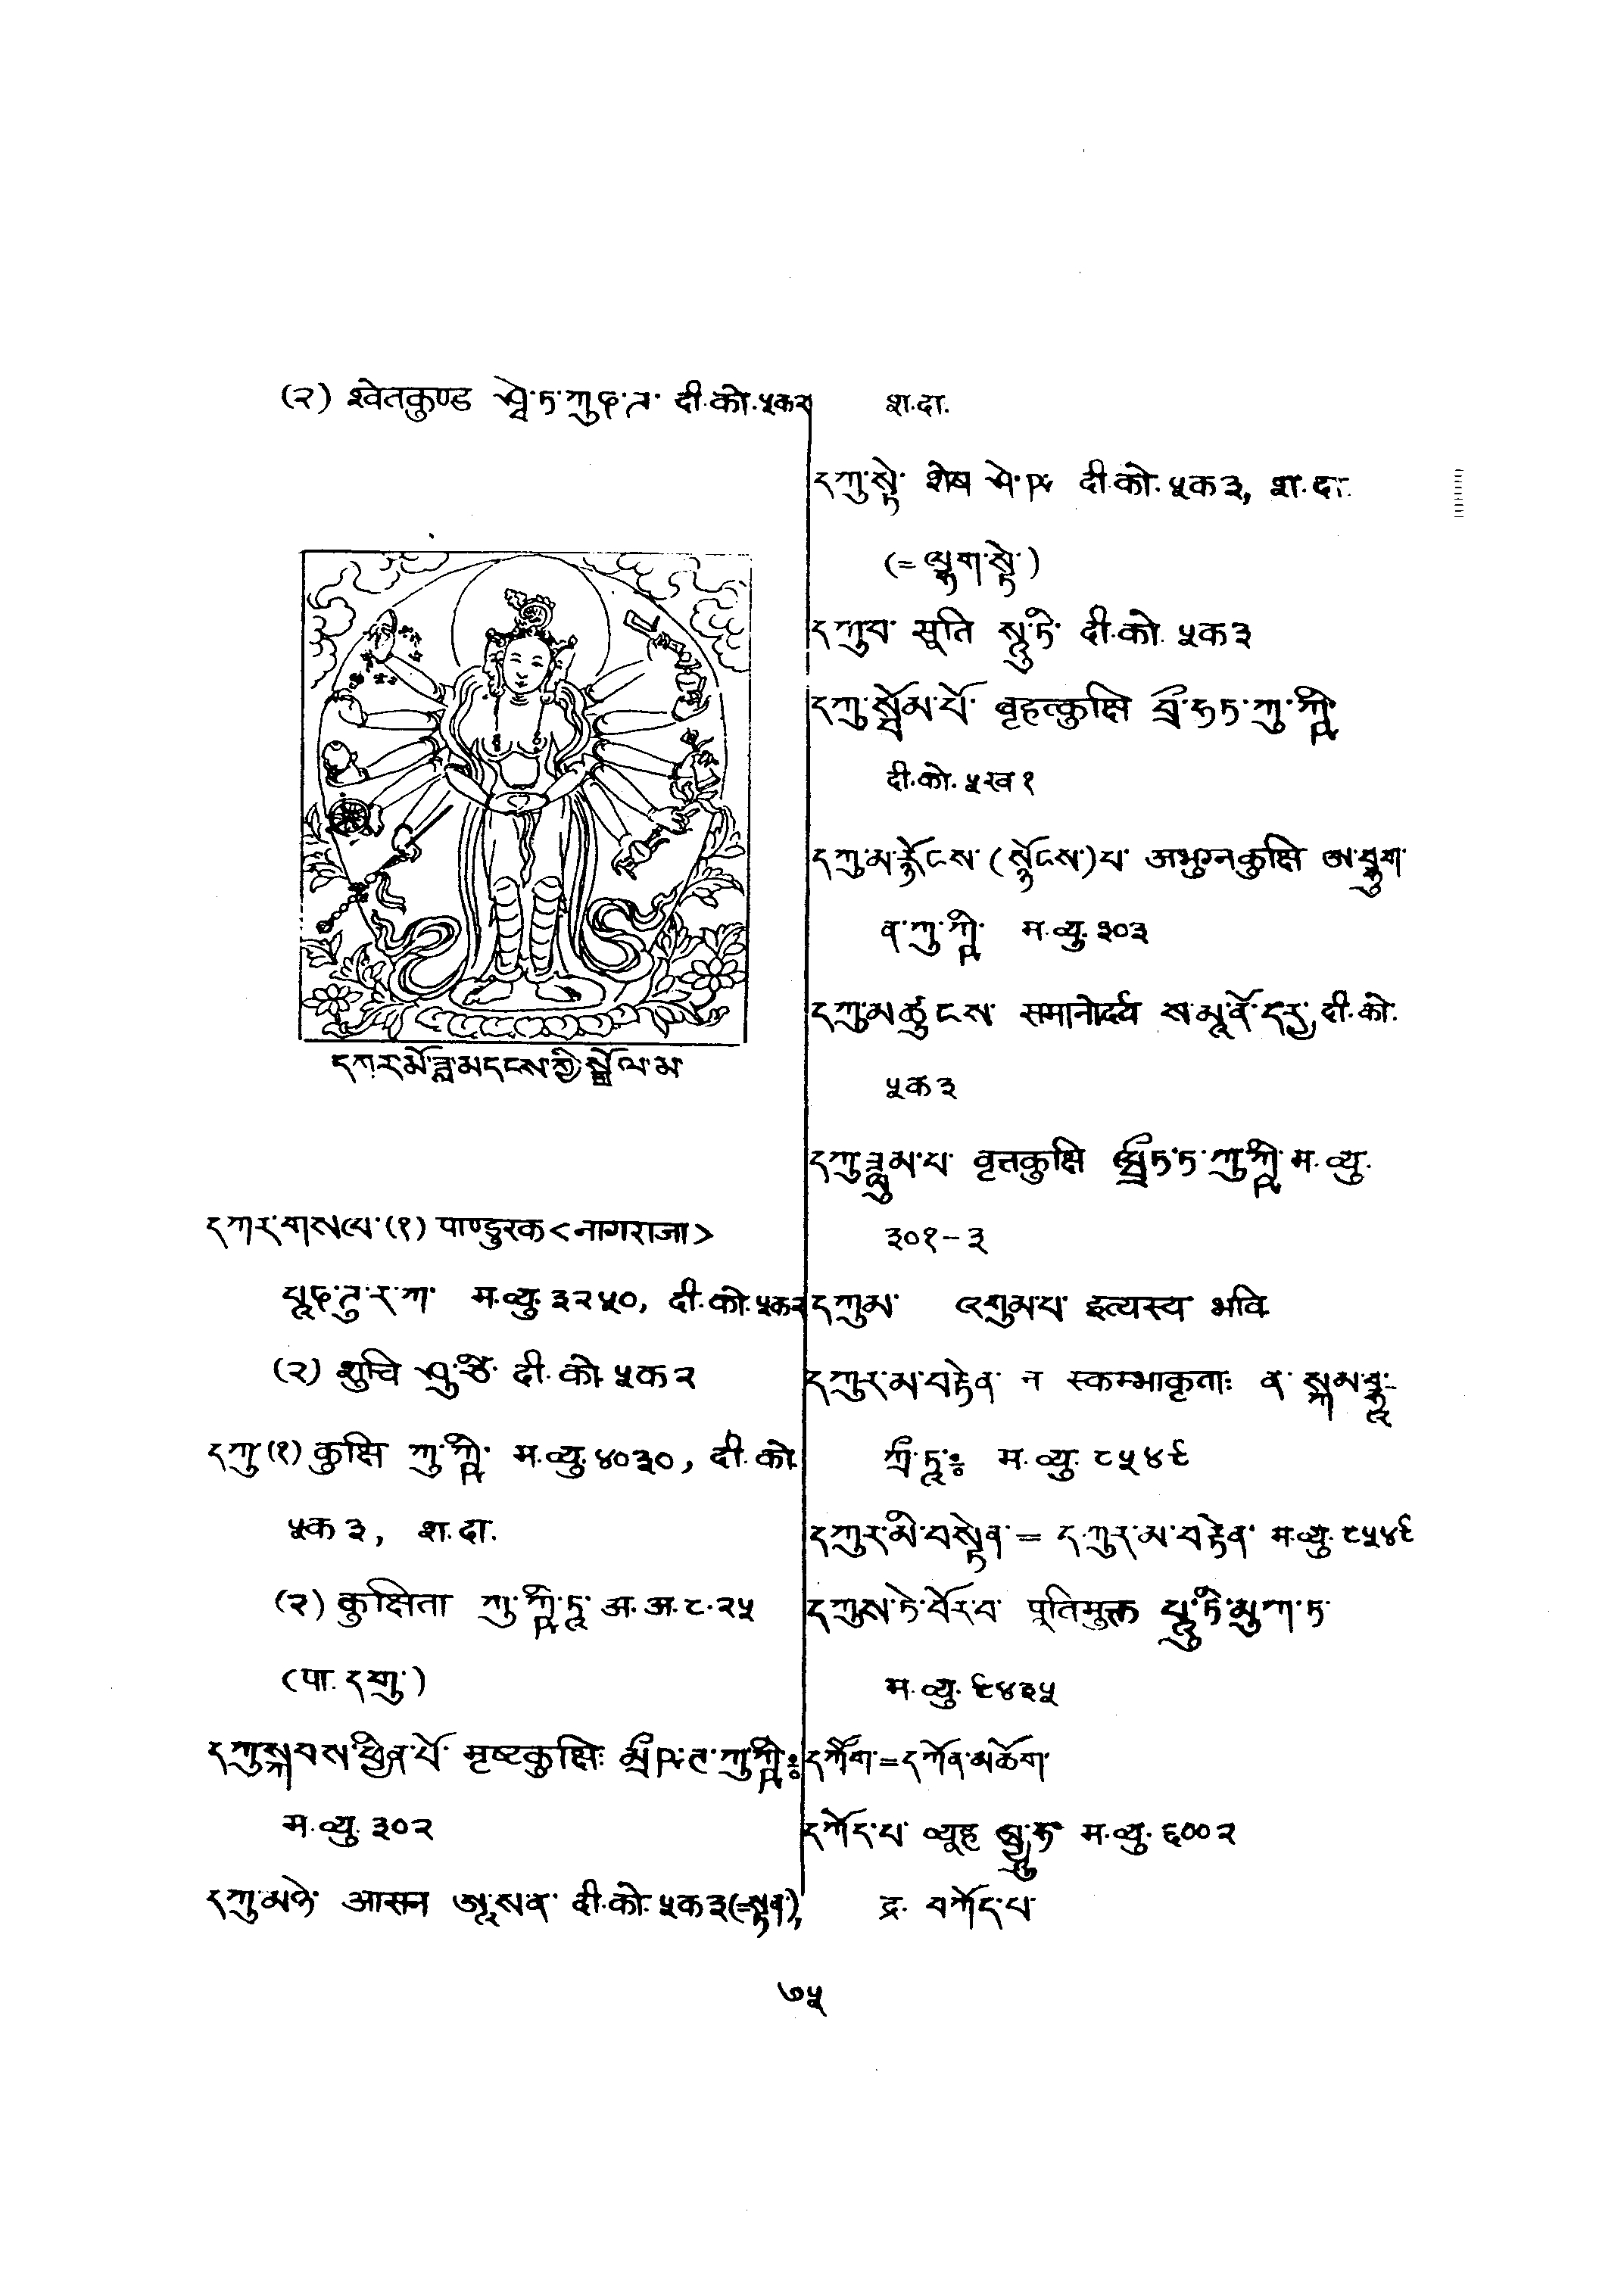 (२) श्वेतकुण्ड ཤྭེ་ཏ་ཀུཎ་ཌ་ दी.को.५क२
དཀར་མོ་ཟླ་མདངས་ཀྱི་སྒྲོལ་མ་
དཀར་གསལ་(१) पाण्डुरक <नागराजा>
པཱཎ་ཌུ་ར་ཀ་ म.व्यु. ३२५०, दी.को.५क२
(२) शुचि ཤུ་ཙི་ दी.को.५क२
དཀུ་(१) कुक्षि ཀུ་ཀྵི་ म.व्यु. ४०३०, दी.को.
५क३, श.दा.
(२) कुक्षिता ཀུ་ཀྵི་ཏཱ་ अ.अ.८.२५
(पा. དཀུ་)
དཀུ་སྐབས་ཕྱིན་པོ་ मृष्टकुक्षिः མྲྀཥ་ཊ་ཀུ་ཀྵིཿ
म.व्यु. ३०२
དཀུ་མཉེ་ आसन ཨཱ་སན་ दी.को.५क३(=སྟན་),
श.दा.
དཀུ་སྟེ་ शेष ཤེ་ཥ་ दी.को.५क३, श.दा.
(=ལྷག་སྟེ་)
དཀུབ་ सूति སཱུ་ཏི་ दी.को. ५क३
དཀུ་སྦོམ་པོ་ बृहत्कुक्षि བྲྀ་ཧཏ་ཀུ་ཀྵི་
दी.को.५ख१
དཀུ་མ་རྙོངས་(སྙོངས་)པ་ अभुग्नकुक्षि ཨ་བྷུག་
ན་ཀུ་ཀྵི་ म.व्यु. ३०३
དཀུ་མཚུངས་ समानोदर्य ས་མཱ་ནོ་དརྱ་ दी.को.
५क३
དཀུ་ཟླུམ་པ་ वृत्तकुक्षि ཝྲྀཏ་ཏ་ཀུ་ཀྵི་ म.व्यु.
३०१-३
དཀུམ་ འགུམཔ་ इत्यस्य भवि.
དཀུར་མ་བརྟེན་ न स्कम्भाकृताः ན་སྐམ་བྷཱ-
ཀྲྀ་ཏཱཿ म.व्यु. ८५४९
དཀུར་མི་བསྟེན་ = དཀུར་མ་བརྟེན་ म.व्यु. ८५४९
དཀུས་ཏེ་བོར་བ་ पूतिमुक्त པཱུ་ཏི་མུཀ་ཏ་
म.व्यु. ९४३५
དཀོག་=དཀོན་མཆོག་
དཀོད་པ་ व्यूह བྱཱུ་ཧ་ म.व्यु. ६००२
द्र. བཀོད་པ་
७५